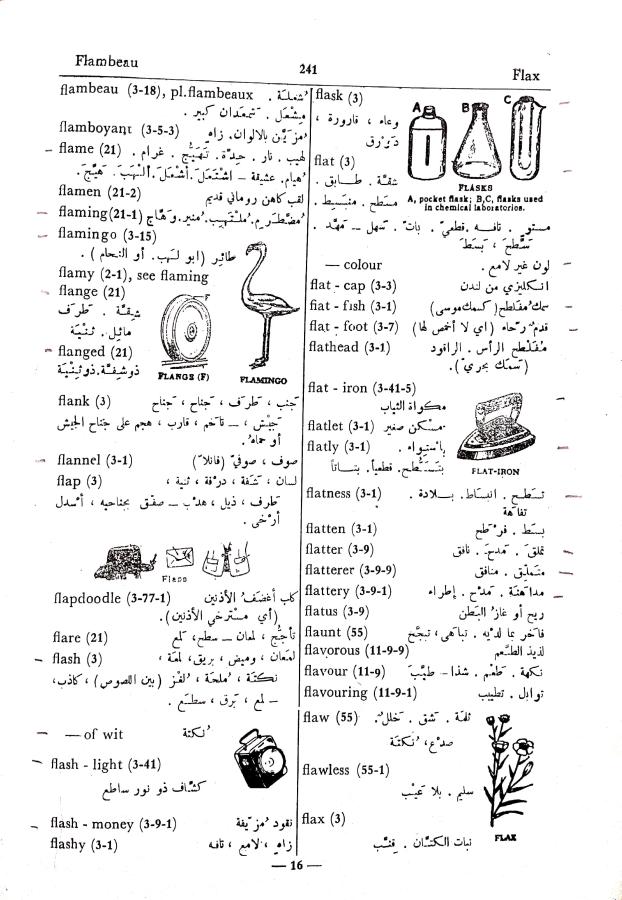 Flambeau
241
Flax
flambeau (3-18), pl.flambeaux شعلة .
مشعل . شمعدان كبير .
flamboyant (3-5-3) مزيّن بالالوان. زاه
flame (21) لهيب . نار . حدّة. تهيّج . غرام .
هيام. عشيقة – اشتعل. أشعل. ألهب. هيّج.
flamen (21-2) لقب كاهن روماني قديم
flaming(21-1) مضطرم. ملتهب. منير. وهّاج
flamingo (3-15)
طائر (ابو لهب. أو النحام) .
flamy (2-1), see flaming
flange (21)
شفّة . طرف
مائل . ثنية
flanged (21)
ذو شفّة. ذو ثنية
F
FLANGE (F)
FLAMINGO
flank (3) جنب ، طرف ، جناح ، جناح
جيش ، – تاخم ، قارب ، هجم على جناح الجيش
أو حماه .
flannel (3-1) صوف ، صوفيّ (فانلا)
flap (3) لسان ، شفّة ، درفة ، ثنية ،
طرف ، ذيل ، هدب – صفق بجناحيه ، أسدل
أرخى .
Flaps
flapdoodle (3-77-1) كلب أغضف الأذنين
(أي مسترخي الأذنين).
flare (21) تأجّج ، لمعان – سطح، لمع
flash (3) لمعان ، وميض ، بريق، لمعة ،
نكتة ، ملحة ، لغز (بين اللصوص) ، كاذب،
– لمع ، برق ، سطع .
— of wit نكتة
flash - light (3-41)
كشّاف ذو نور ساطع
flash - money (3-9-1) نقود مزيّفة
flashy (3-1) زاه ، لامع ، تافه
flask (3)
وعاء ، قارورة ،
دورق
flat (3)
شقّة . طابق .
مسطح . منبسط .
A
B
C
FLASKS
A, pocket flask; B,C, flasks used
in chemical laboratories.
مستو . تافه. قطعيّ . باتّ . سهل – مهّد .
سطّح ، بسّط
— colour لون غير لامع .
flat - cap (3-3) انكليزي من لندن
flat - fish (3-1) سمك مفلطح (كسمك موسى)
flat - foot (3-7) قدم رحّاء (اي لا أخمص لها)
flathead (3-1) مفلطح الرأس . الراقود
(سمك بحري).
flat - iron (3-41-5)
مكواة الثياب
flatlet (3-1) مسكن صغير
flatly (3-1) باستواء .
بتسطّح. قطعياً. بتاتاً
FLAT-IRON
flatness (3-1) تسطح . انبساط. بلادة .
تفاهة
flatten (3-1) بسط . فرطح
flatter (3-9) تملق . مدح . نافق
flatterer (3-9-9) متملّق . منافق
flattery (3-9-1) مداهنة . مدح . إطراء
flatus (3-9) ريح أو غاز البطن
flaunt (55) فاخر بما لديه . تباهى، تبجّح
flavorous (11-9-9) لذيذ الطعم
flavour (11-9) نكهة . طعم . شذا – طيّب
flavouring (11-9-1) توابل . تطييب
flaw (55) ثلمة . شق . خلل .
صدع ، نكتة
flawless (55-1)
سليم . بلا عيب
flax (3)
نبات الكتان . قنّب
FLAX
— 16 —